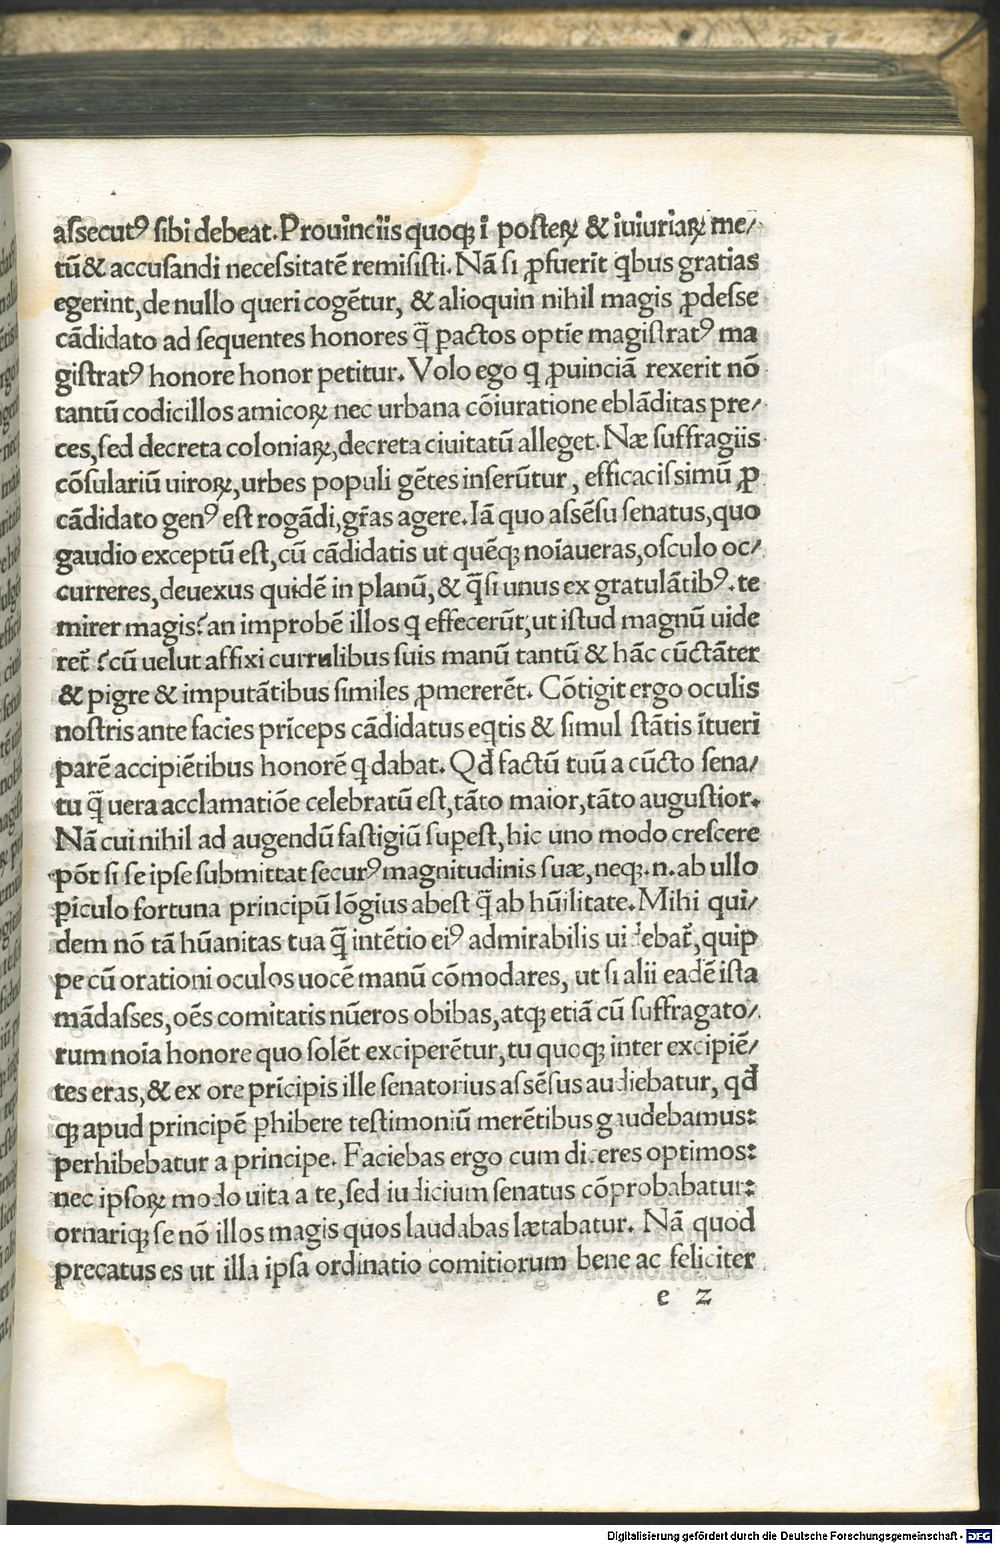 aſsecutꝰ ſibi debeat. Prouinciis quoqꝫ ĩ poſteꝝ & iuiuriaꝝ me/
tũ & accuſandi neceſsitatẽ remiſiſti. Nã ſi ꝓfuerit qͥbus gratias
egerint, de nullo queri cogẽtur, & alioquin nihil magis ꝓdeſse
cãdidato ad ſequentes honores q̃ ꝑactos optĩe magiſtratꝰ ma
giſtratꝰ honore honor petitur. Volo ego q ꝓuinciã rexerit nõ
tantũ codicillos amicoꝝ nec urbana cõiuratione eblãditas pre/
ces, ſed decreta coloniaꝝ, decreta ciuitatũ alleget. Næ ſuffragiis
cõſulariũ uiroꝝ, urbes populi gẽtes inſerũtur, efficaciſsimũ ꝓ
cãdidato genꝰ eſt rogãdi, gr̃as agere. Iã quo aſsẽſu ſenatus, quo
gaudio exceptũ eſt, cũ cãdidatis ut quẽqꝫ noĩaueras, oſculo oc/
curreres, deuexus quidẽ in planũ, & q̃ſi unus ex gratulãtibꝰ. te
mirer magis? an improbẽ illos q effecerũt, ut iſtud magnũ uide
ret̃? cũ uelut affixi currulibus ſuis manũ tantũ & hãc cũctãter
& pigre & imputãtibus ſimiles ꝓmererẽt. Cõtigit ergo oculis
noſtris ante facies prĩceps cãdidatus eqͥtis & ſimul ſtãtis ĩtueri
parẽ accipiẽtibus honorẽ q dabat. Qđ factũ tuũ a cũcto ſena/
tu q̃ uera acclamatiõe celebratũ eſt, tãto maior, tãto auguſtior.
Nã cui nihil ad augendũ faſtigiũ ſuꝑeſt, hic uno modo creſcere
põt ſi ſe ipſe ſubmittat ſecurꝰ magnitudinis ſuæ, neqꝫ .n. ab ullo
ꝑiculo fortuna principũ lõgius abeſt q̃ ab hũilitate. Mihi qui/
dem nõ tã hũanitas tua q̃ intẽtio eiꝰ admirabilis uidebat̃, quip
pe cũ orationi oculos uocẽ manũ cõmodares, ut ſi alii eadẽ iſta
mãdaſses, oẽs comitatis nũeros obibas, atqꝫ etiã cũ ſuffragato/
rum noĩa honore quo ſolẽt exciperẽtur, tu quoqꝫ inter excipiẽ/
tes eras, & ex ore prĩcipis ille ſenatorius aſsẽſus audiebatur, qđ
qꝫ apud principẽ ꝑhibere teſtimoniũ merẽtibus gaudebamus:
perhibebatur a principe. Faciebas ergo cum diceres optimos:
nec ipſoꝝ modo uita a te, ſed iudicium ſenatus cõprobabatur:
ornariqꝫ ſe nõ illos magis quos laudabas lætabatur. Nã quod
precatus es ut illa ipſa ordinatio comitiorum bene ac feliciter
e 2
Digitalisierung gefördert durch die Deutsche Forschungsgemeinschaft - DFG